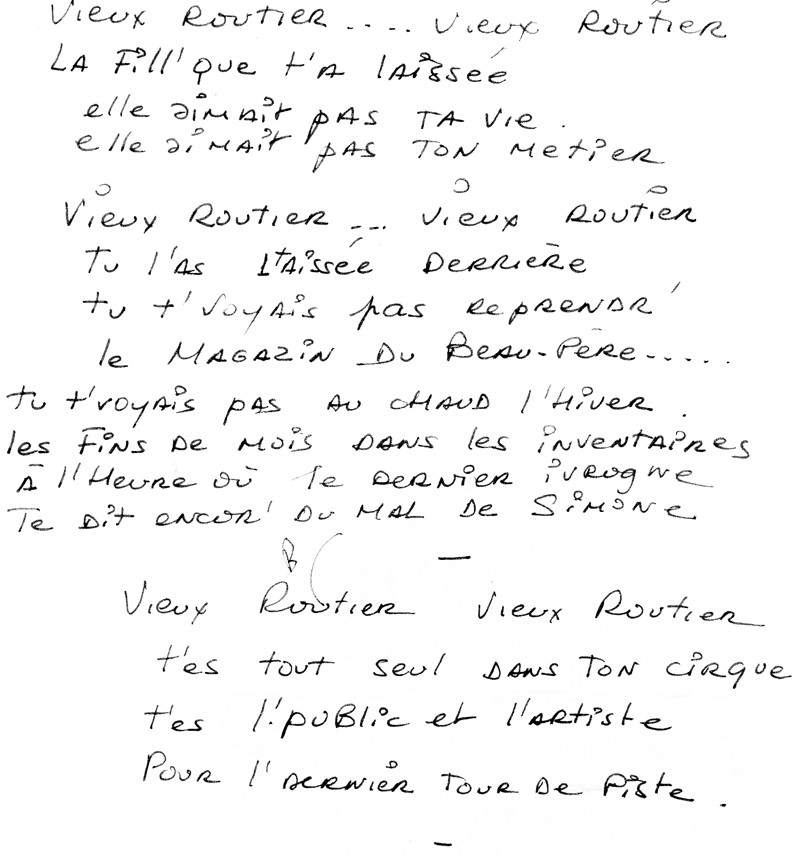 Vieux Routier .... Vieux Routier
La Fill' que t'a laissée
elle aimait pas ta vie.
elle aimait pas ton metier
Vieux Routier ... Vieux Routier
Tu l'as laissée derrière
tu t'voyais pas reprendr'
le Magazin Du Beau-Père.....
tu t'voyais pas au chaud l'Hiver.
les Fins de mois dans les inventaires
À l'Heure où le dernier ivrogne
Te dit encor' du mal de Simone
—
Vieux Routier Vieux Routier
t'es tout seul dans ton cirque
t'es l'public et l'artiste
Pour l'dernier tour de piste.
—